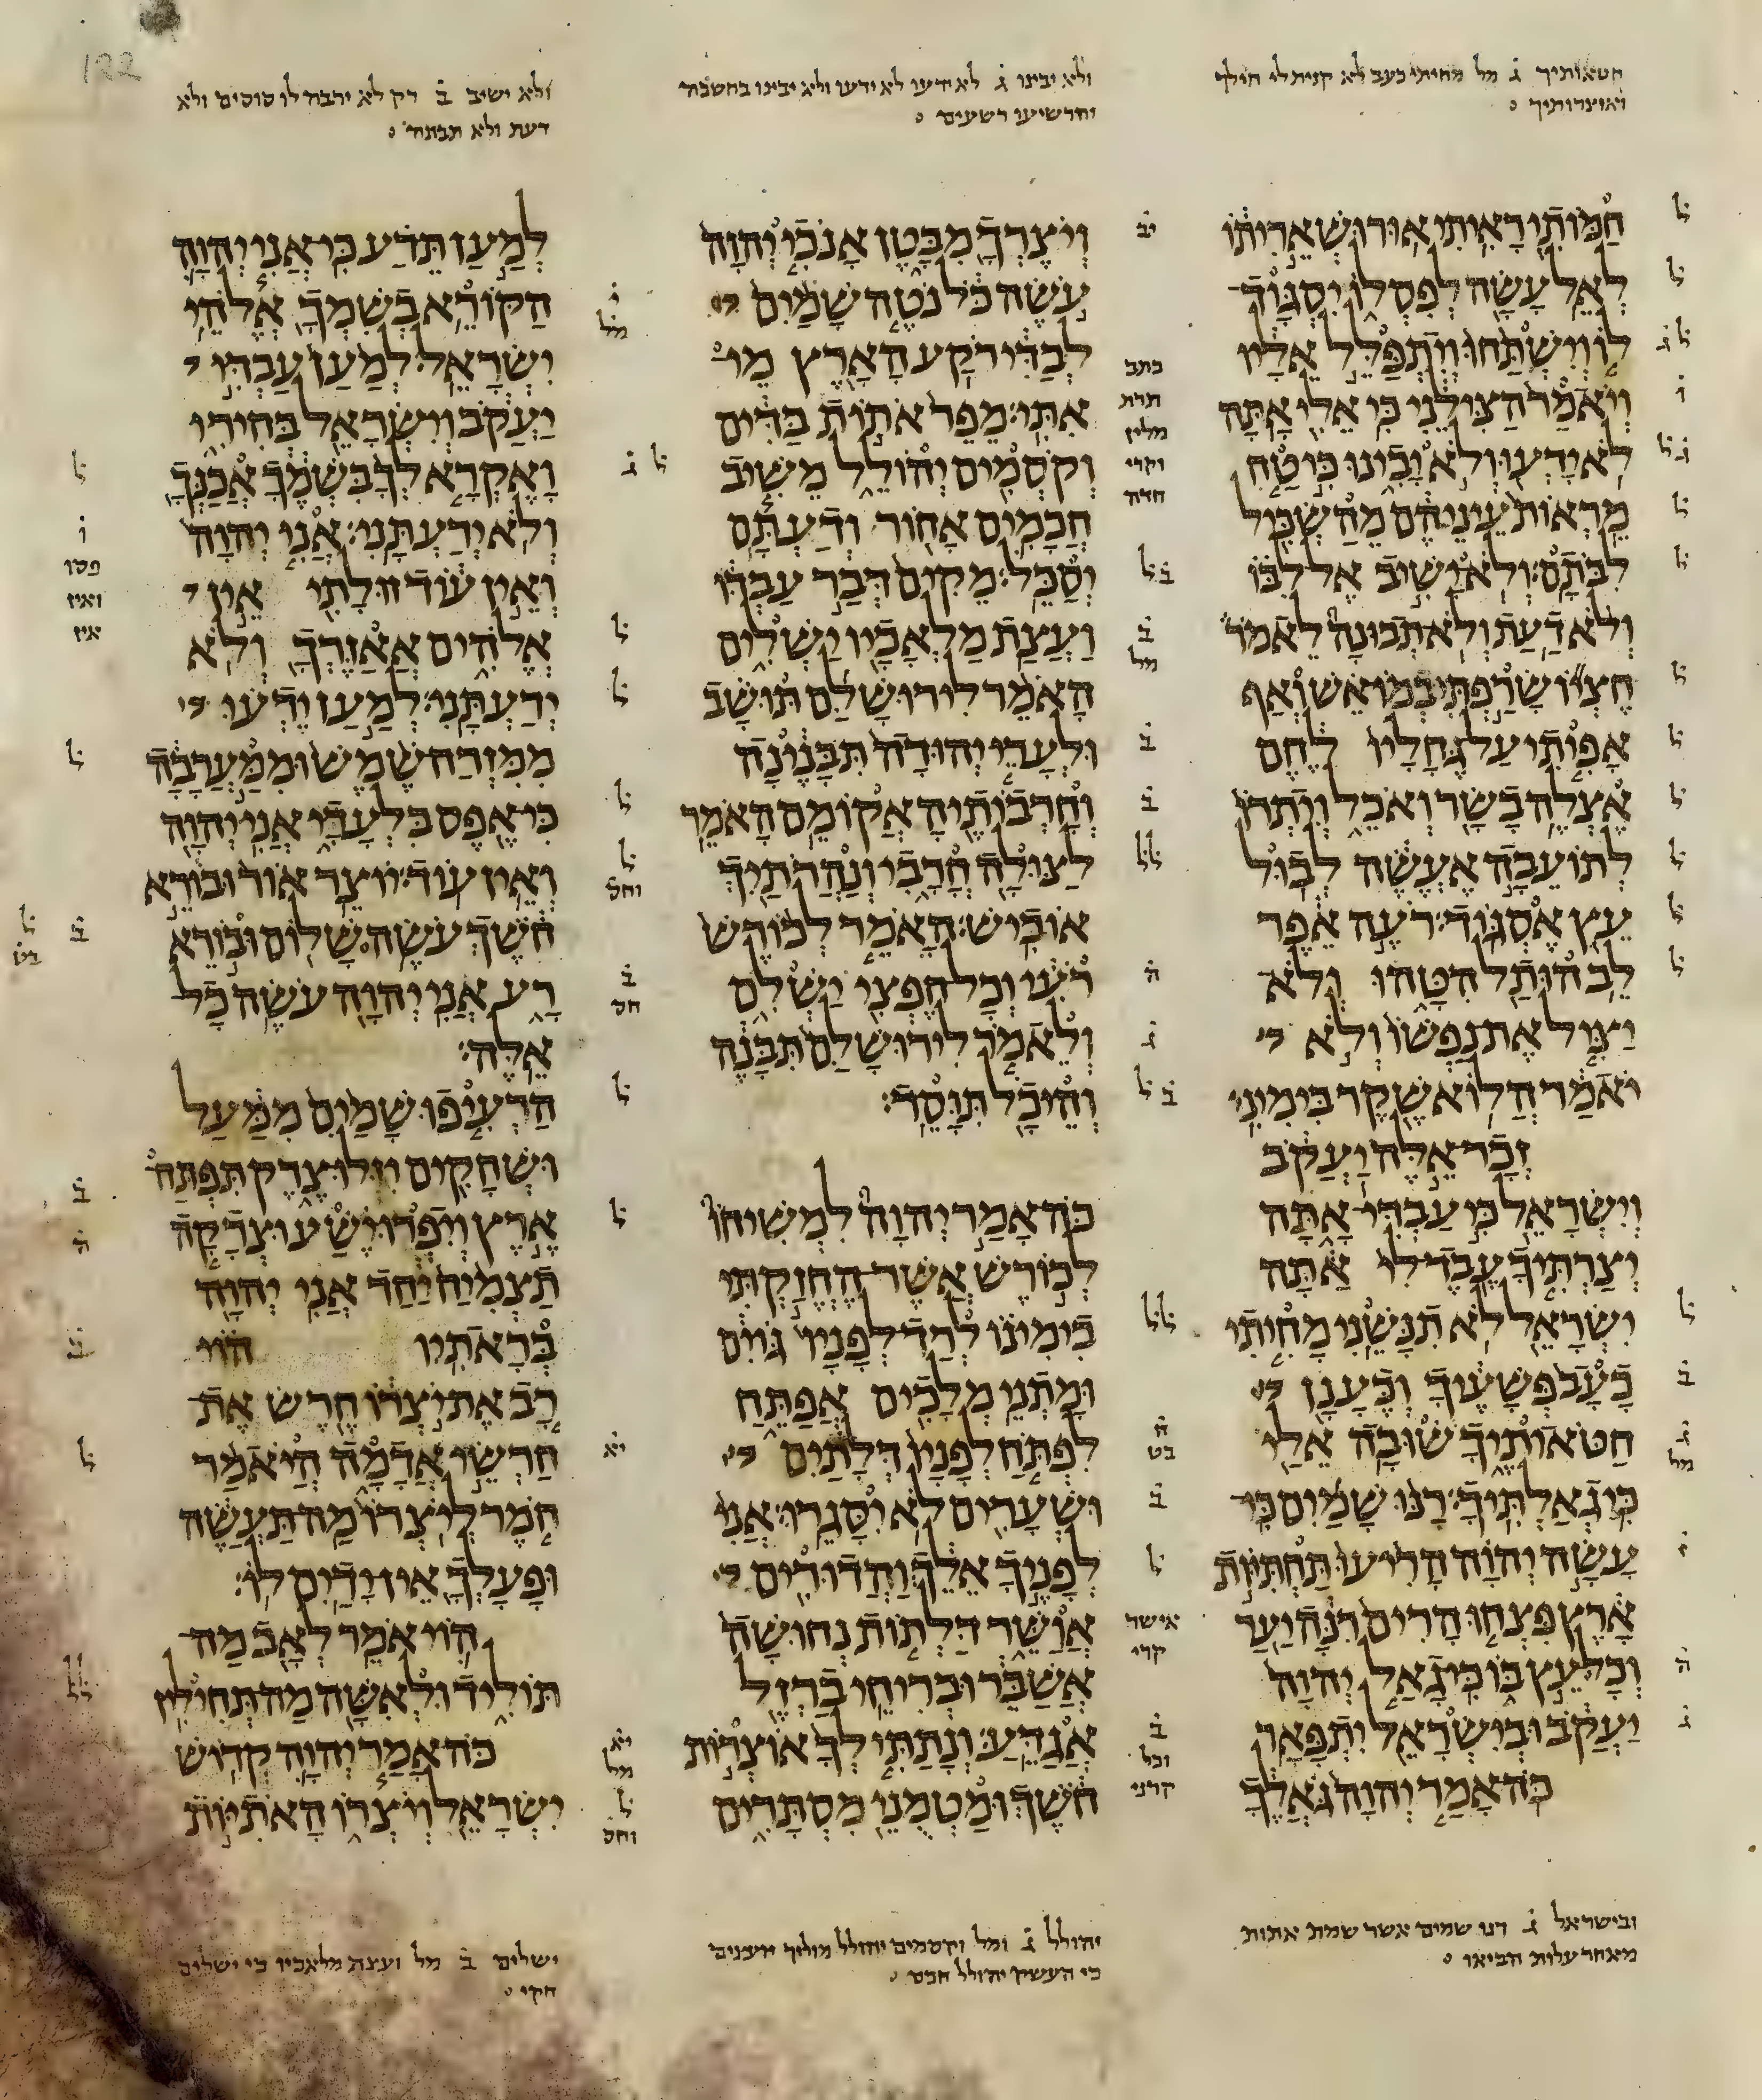 חטאותיך ג מל מחיתי כעב לא קנית לי חילך
ואוצרותיך
ולא יבינו ג לא ידעו לא ידעו ולא יבינו בחשכה
והרשיעו רשעים
ולא ישיב ב רק לא ירבה לו סוסים ולא
דעת ולא תבונה
חמותי ראיתי אור ושאריתו
לאל עשה לפסלו יסגוד
לו וישתחו ויתפלל אליו
ויאמר הצילני כי אלי אתה
לא ידעו ולא יבינו כי טח
מראות עיניהם מהשכיל
לבתם ולא ישיב אל לבו
ולא דעת ולא תבונה לאמר
חציו שרפתי במו אש ואף
אפיתי על גחליו לחם
אצלה בשר ואכל ויתרו
לתועבה אעשה לבול
עץ אסגוד רעה אפר
לב הותל הטהו ולא
יציל את נפשו ולא
יאמר הלוא שקר בימיני
זכר אלה יעקב
וישראל כי עבדי אתה
יצרתיך עבד לי אתה
ישראל לא תנשני מחיתי
כעב פשעיך וכענן
חטאותיך שובה אלי
כי גאלתיך רנו שמים כי
עשה יהוה הריעו תחתיות
ארץ פצחו הרים רנה יער
וכל עץ בו כי גאל יהוה
יעקב ובישראל יתפאר
כה אמר יהוה גאלך
כתב
תרת
מלין
וקרי
חדה
ויצרך מבטן אנכי יהוה
עשה כל נטה שמים
לבדי רקע הארץ מי
אתי מפר אתות בדים
וקסמים יהולל משיב
חכמים אחור ודעתם
יסכל מקים דבר עבדו
ועצת מלאכיו ישלים
האמר לירושלם תושב
ולערי יהודה תבנינה
וחרבותיה אקומם האמר
לצולה חרבי ונהרתיך
אוביש האמר לכורש
רעי וכל חפצי ישלם
ולאמר לירושלם תבנה
והיכל תוסד
כה אמר יהוה למשיחו
לכורש אשר החזקתי
בימינו לרד לפניו גוים
ומתני מלכים אפתח
לפתח לפניו דלתים
ושערים לא יסגרו אני
לפניך אלך והדורים
אושר דלתות נחושה
אשבר ובריחי ברזל
אגדע ונתתי לך אוצרות
חשך ומטמני מסתרים
אישר
קרי
למען תדע כי אני יהוה
הקורא בשמך אלהי
ישראל למען עבדי
יעקב וישראל בחירי
ואקרא לך בשמך אכנך
ולא ידעתני אני יהוה
ואין עוד זולתי אין
אלהים אאזרך ולא
ידעתני למען ידעו
ממזרח שמש וממערבה
כי אפס בלעדי אני יהוה
ואין עוד יוצר אור ובורא
חשך עשה שלום ובורא
רע אני יהוה עשה כל
אלה
הרעיפו שמים ממעל
ושחקים יזלו צדק תפתח
ארץ ויפרו ישע וצדקה
תצמיח יחד אני יהוה
בראתיו הוי
רב את יצרו חרש את
חרשי אדמה היאמר
חמר ליצרו מה תעשה
ופעלך אין ידים לו
הוי אמר לאב מה
תוליד ולאשה מה תחילין
כה אמר יהוה קדוש
ישראל ויצרו האתיות
ובישראל ג רנו שמים אשר שמת אתות
מאחר עלות הביאו
יהולל ג ומל וקסמים יהולל מוליך יועצים
כי העשק יהולל חכם
ישלים ב מל ועצת מלאכיו כי ישלים
חקי